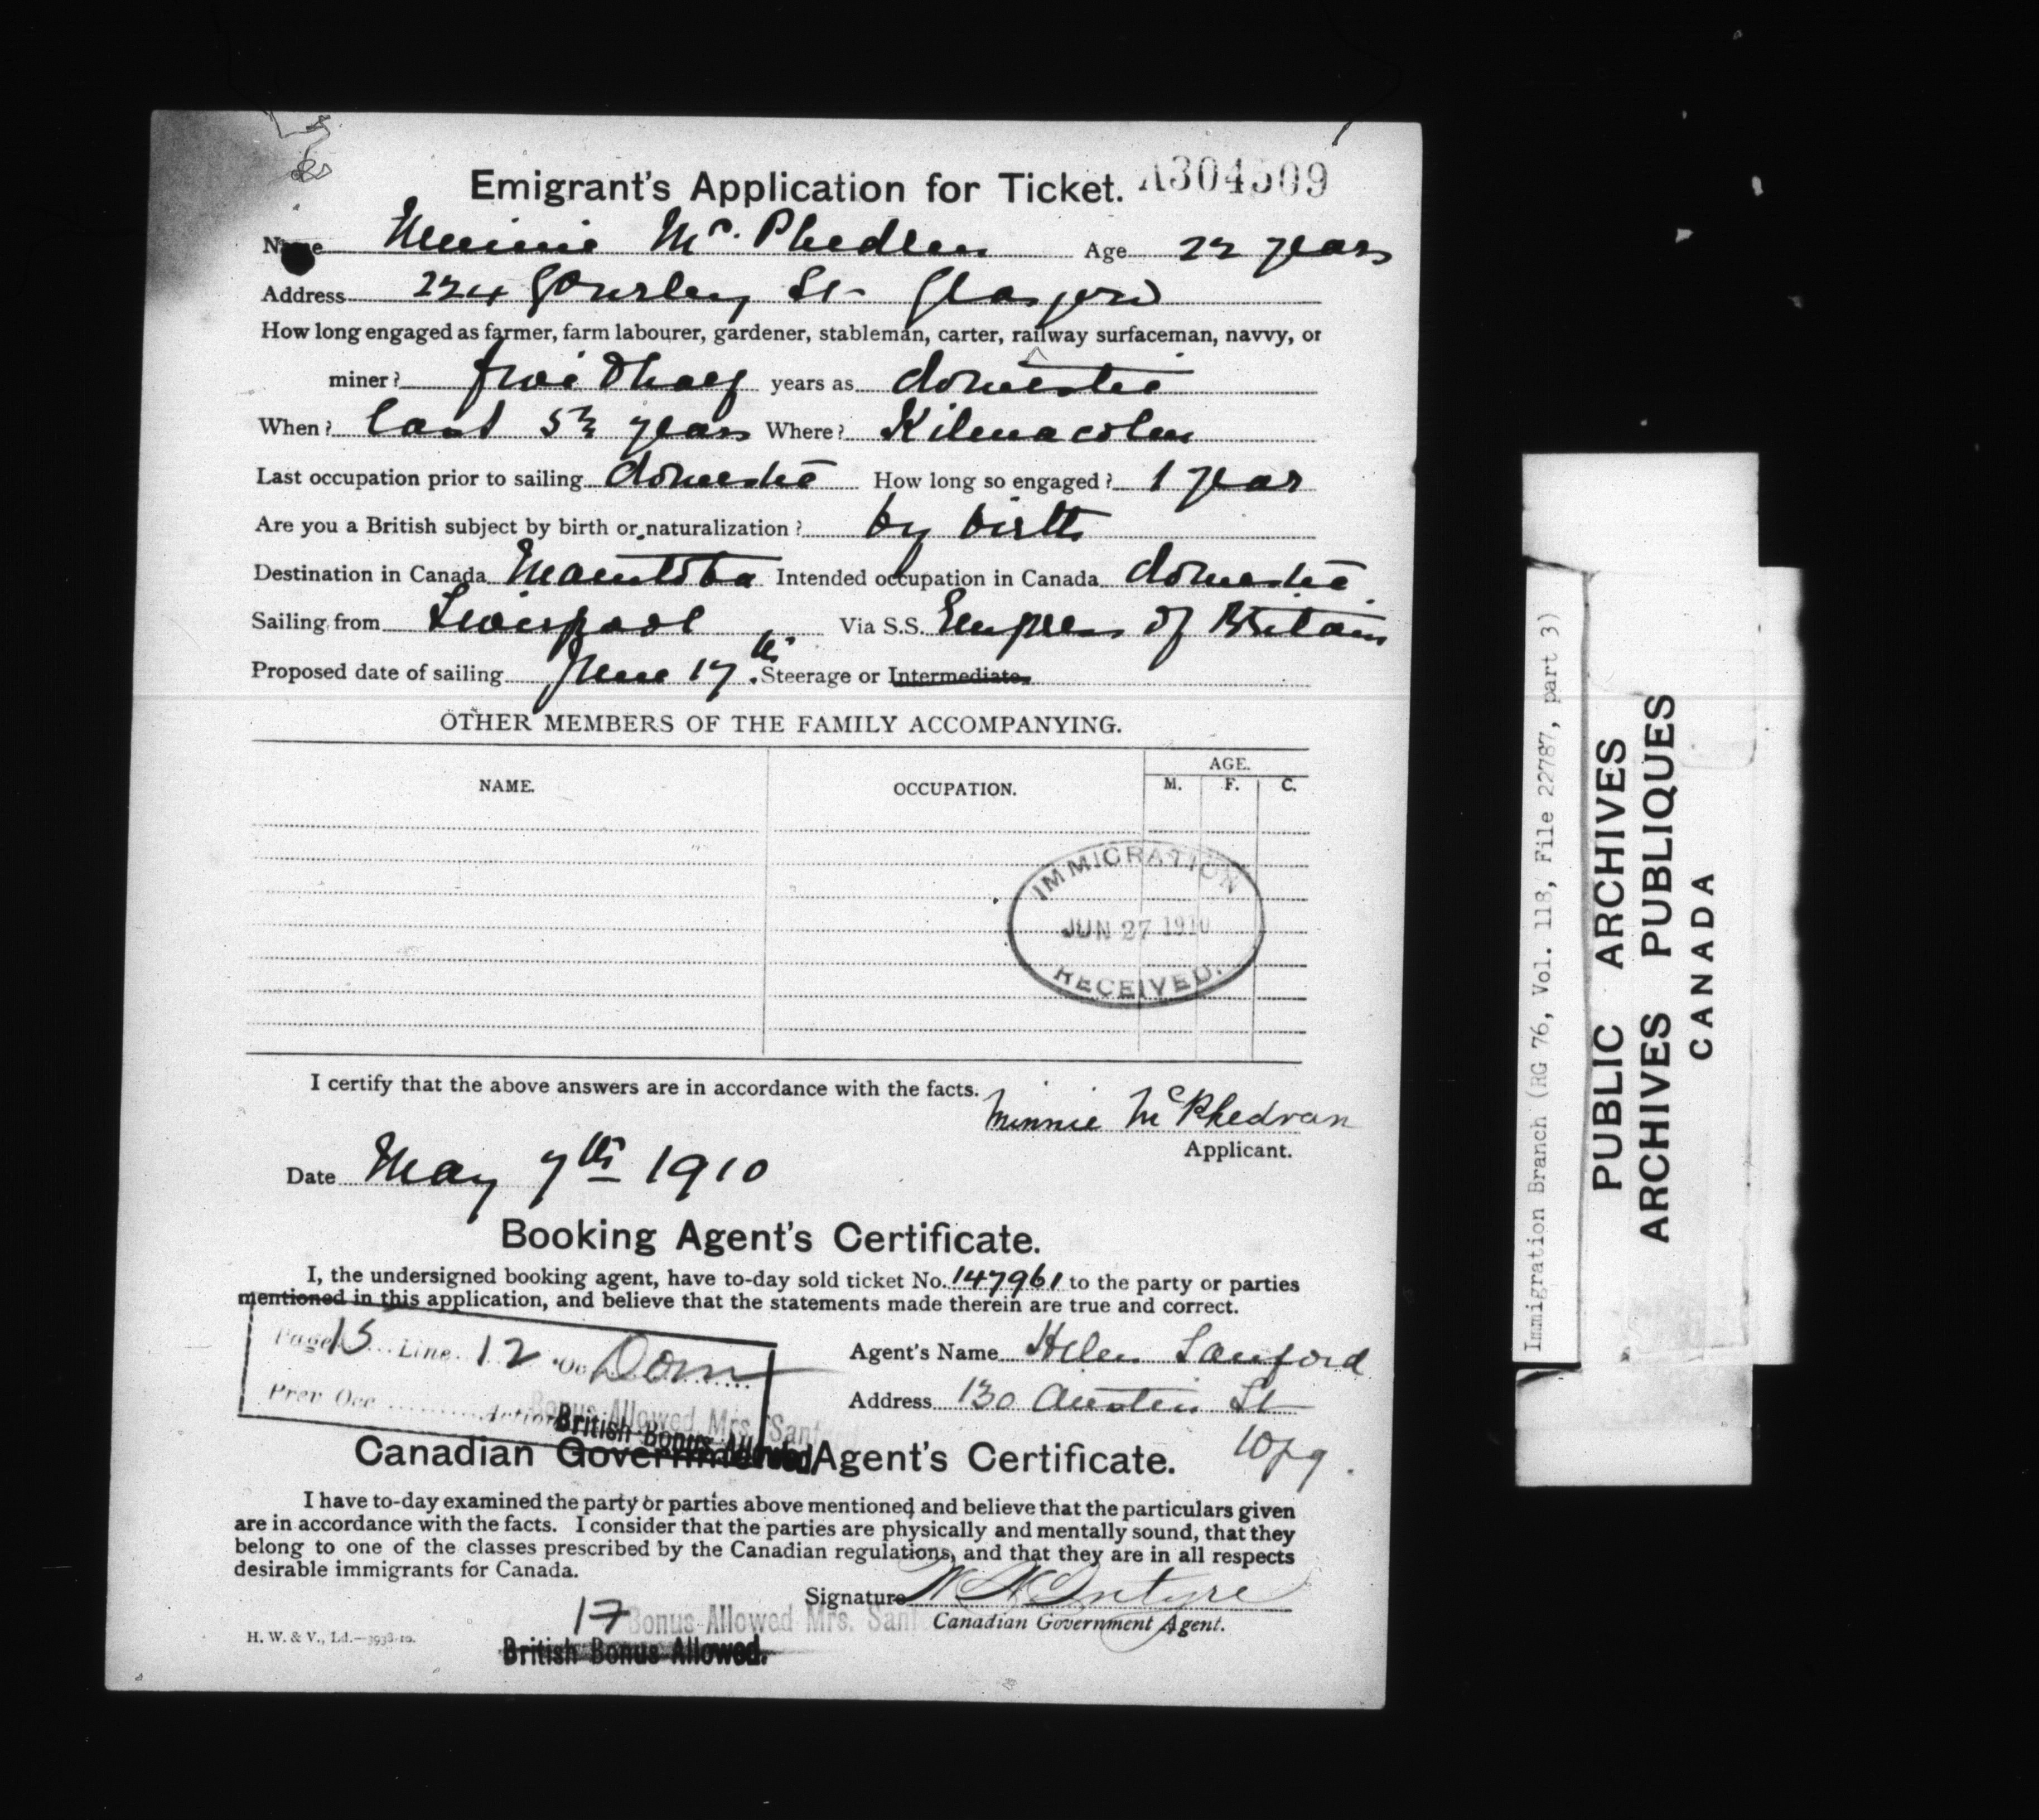 Emigrant's Application for Ticket. A304509
Name Minnie Mc. Phedlen Age 22 years
Address 224 Gourley St Glasgow
How long engaged as farmer, farm labourer, gardener, stableman, carter, railway surfaceman, navvy, or
miner? five & half years as domestic
When? last 5½ years Where? Kilmacolm
Last occupation prior to sailing domestic How long so engaged? 1 year
Are you a British subject by birth or naturalization? by birth
Destination in Canada Manitoba Intended occupation in Canada domestic
Sailing from Liverpool Via S.S. Empress of Britain
Proposed date of sailing June 17th. Steerage or Intermediate
OTHER MEMBERS OF THE FAMILY ACCOMPANYING.
NAME. OCCUPATION. AGE.
M. F. C.
IMMIGRATION
JUN 27 1910
RECEIVED.
I certify that the above answers are in accordance with the facts.
Minnie McPhedran
Applicant.
Date May 7th 1910
Booking Agent's Certificate.
I, the undersigned booking agent, have to-day sold ticket No. 147961 to the party or parties
mentioned in this application, and believe that the statements made therein are true and correct.
Page 15 Line 12 Oc Dom
Prev Occ Action
Agent's Name Helen Sanford
Address 130 Austin St
Wpg.
Bonus Allowed Mrs. Sanford
British Bonus Allowed
Canadian Government Agent's Certificate.
I have to-day examined the party or parties above mentioned, and believe that the particulars given
are in accordance with the facts. I consider that the parties are physically and mentally sound, that they
belong to one of the classes prescribed by the Canadian regulations, and that they are in all respects
desirable immigrants for Canada.
Signature
Canadian Government Agent.
17 Bonus Allowed Mrs. Sanf
British Bonus Allowed.
H. W. & V., Ld.—3938-10.
Immigration Branch (RG 76, Vol. 118, File 22787, part 3)
PUBLIC ARCHIVES
ARCHIVES PUBLIQUES
CANADA